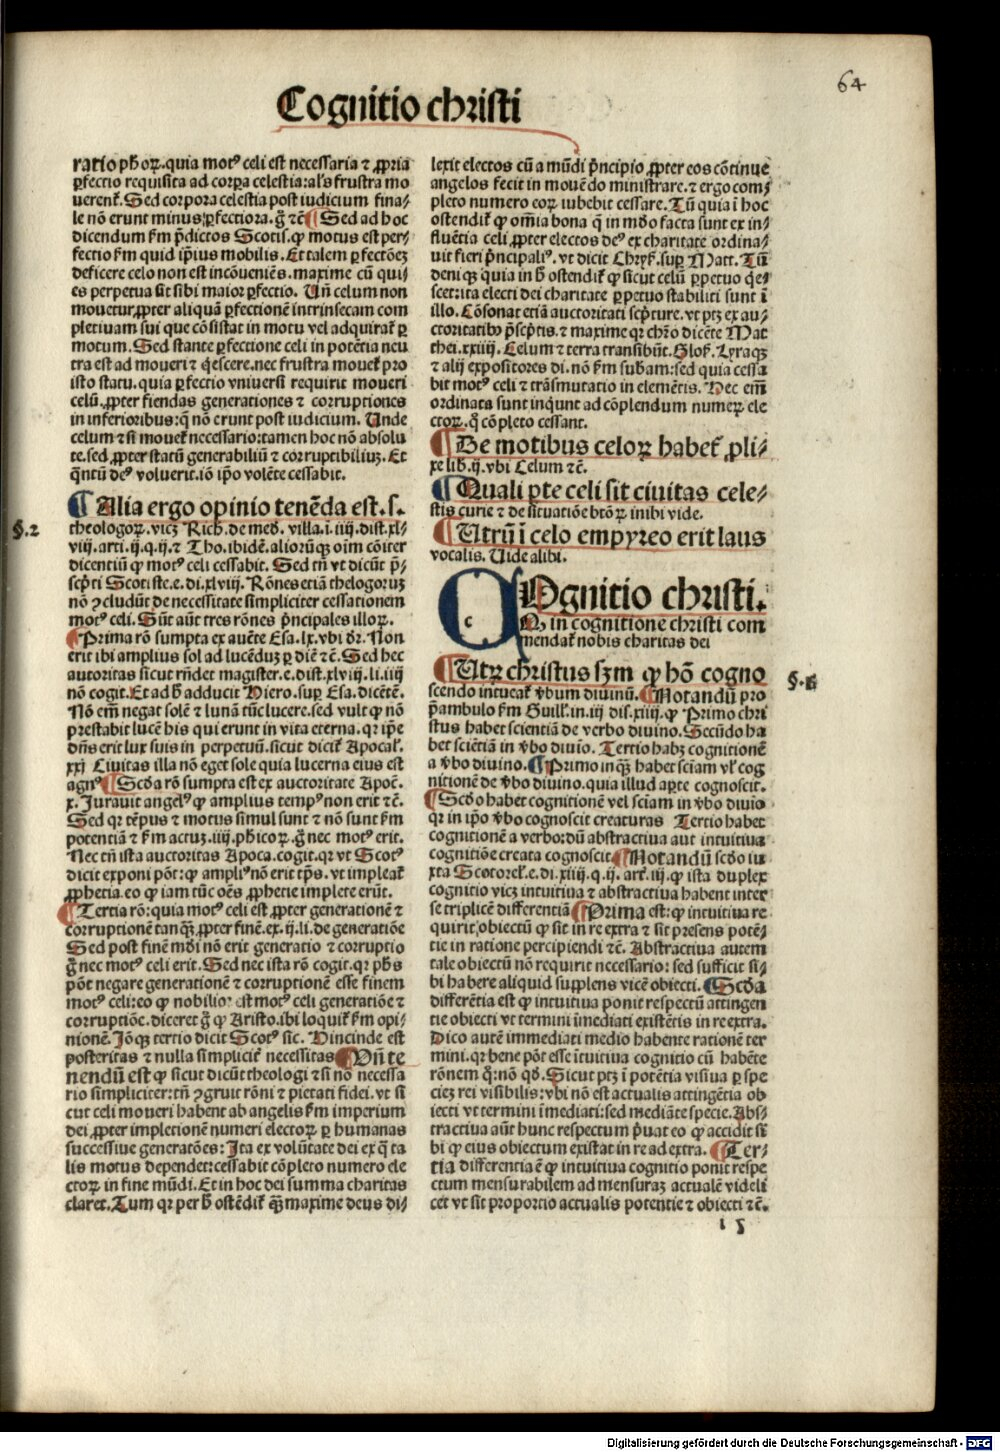 64
Cognitio christi
ratio phoꝝ. quia motꝰ celi est necessaria ⁊ ꝓpria
ꝑfectio requisita ad corpa celestia: als frustra mo
uerent᷑. Sed corpora celestia post iudicium fina⸗
le nō erunt minus ꝑfectiora. g̊ ⁊c̄ ¶ Sed ad hoc
dicendum ẜm p̄dictos Scotis. ꝙ motus est per⸗
fectio ẜm quid ip̄ius mobilis. Et talem ꝑfectōeꝫ
deficere celo non est incōueniēs. maxime cū qui⸗
es perpetua sit sibi maior ꝑfectio. Un̄ celum non
mouetur ꝓpter aliquā ꝑfectionē intrinsecam com
pletiuam sui que cōsistat in motu vel adquirat᷑ ꝑ
motum. Sed stante ꝑfectione celi in potētia neu
tra est ad moueri ⁊ q̇escere. nec frustra mouet᷑ pro
isto statu. quia ꝑfectio vniuersi requirit moueri
celū ꝓpter fiendas generationes ⁊ corruptiones
in inferioribus: q̄ nō erunt post iudicium. Unde
celum ⁊ si mouet᷑ necessario: tamen hoc nō absolu
te. sed ꝓpter statū generabiliū ⁊ corruptibiliuꝫ. Et
q̄ntū deꝰ voluerit. iō ip̄o volēte cessabit.
¶ Alia ergo opinio tenēda est. s.
§. 2
theologoꝝ. vicꝫ Rich. de med. villa. i. iiij. dist. xl⸗
viij. arti. ij. q. ij. ⁊ Tho. ibidē. alioꝝūqꝫ oīm cōiter
dicentiū ꝙ motꝰ celi cessabit. Sed tn̄ vt dicūt p̄⸗
scp̄ti Scotiste. e. di. xlviij. Rōnes etiā thelogoruꝫ
nō ꝯcludūt de necessitate simpliciter cessationem
motꝰ celi. Sūt aūt tres rōnes p̄ncipales illoꝝ.
¶ Prima rō sumpta ex aucte Esa. lx. vbi dr̄. Non
erit ibi amplius sol ad lucēduꝫ ꝑ diē ⁊c̄. Sed hec
autoritas sicut rn̄det magister. e. dist. xlviij. li. iiij
nō cogit. Et ad h̊ adducit Hiero. suꝑ Esa. dicētē.
Nō em̄ negat solē ⁊ lunā tūc lucere. sed vult ꝙ nō
prestabit lucē his qui erunt in vita eterna. qr ip̄e
dn̄s erit lux suis in perpetuū. sicut dicit᷑ Apocal᷑.
xxj Ciuitas illa nō eget sole quia lucerna eius est
agnꝰ ¶ Scd̄a rō sumpta est ex auctoritate Apoc̄.
x. Jurauit angelꝰ ꝙ amplius tempꝰ non erit ⁊c̄.
Sed qr tēpus ⁊ motus simul sunt ⁊ nō sunt ẜm
potentiā ⁊ ẜm actuꝫ. iiij. phicoꝝ. g̊ nec motꝰ erit.
Nec tn̄ ista auctoritas Apoca. cogit. qr vt Scotꝰ
dicit exponi pōt: ꝙ ampliꝰ nō erit tp̄s. vt impleat᷑
ꝓphetia. eo ꝙ iam tūc oēs ꝓphetie implete erūt.
¶ Tertia rō: quia motꝰ celi est ꝓpter generationē ⁊
corruptionē tanqꝫ ꝓpter finē. ex. ij. li. de generatiōe
Sed post finē mūdi nō erit generatio ⁊ corruptio
g̊ nec motꝰ celi erit. Sed nec ista rō cogit. qr phūs
pōt negare generationē ⁊ corruptionē esse finem
motꝰ celi: eo ꝙ nobilior est motꝰ celi generatiōe ⁊
corruptiōe. diceret g̊ ꝙ Aristo. ibi loquit᷑ ẜm opi⸗
nionē. Jōqꝫ tertio dicit Scotꝰ sic. Hincinde est
posteritas ⁊ nulla simplicit᷑ necessitas ¶ Un̄ te
nendū est ꝙ sicut dicūt theologi ⁊ si nō necessa
rio simpliciter: tn̄ ꝯgruit rōni ⁊ pietati fidei. vt si
cut celi moueri habent ab angelis ẜm imperium
dei ꝓpter impletionē numeri electoꝝ ꝑ humanas
successiue generatōes: Ita ex volūtate dei ex q̄ ta
lis motus dependet: cessabit cōpleto numero ele
ctoꝝ in fine mūdi. Et in hoc dei summa charitas
claret. Tum qr per h̊ ostēdit᷑ qꝫ maxime deus di⸗
lexit electos cū a mūdi p̄ncipio ꝓpter eos cōtinue
angelos fecit in mouēdo ministrare. ⁊ ergo com⸗
pleto numero eoꝝ iubebit cessare. Tū quia ī hoc
ostendit᷑ ꝙ om̄ia bona q̄ in mūdo facta sunt ex in⸗
fluētia celi ꝓpter electos deꝰ ex charitate ordina⸗
uit fieri p̄ncipaliꝰ. vt dicit Chrys. suꝑ Matt. Tū
deniqꝫ quia in h̊ ostendit᷑ ꝙ sicut celū ꝑpetuo q̇e⸗
scet: ita electi dei charitate ꝑpetuo stabiliti sunt ī
illo. Cōsonat etiā auctoritati scp̄ture. vt ptꝫ ex au⸗
ctoritatibꝰ p̄scp̄tis. ⁊ maxime qr chr̄o dicēte Mat
thei. xxiiij. Celum ⁊ terra transibūt. Glos. Lyraqꝫ
⁊ alij expositores di. nō ẜm subam: sed quia cessa
bit motꝰ celi ⁊ trāsmutatio in elemētis. Hec em̄
ordinata sunt inquūt ad cōplendum numeꝝ ele
ctoꝝ. q̊ cōpleto cessant.
¶ De motibus celoꝝ habet᷑ ꝓli⸗
xe lib. ij. vbi Celum ⁊c̄.
¶ Quali ꝑte celi sit ciuitas cele⸗
stis curie ⁊ de situatiōe btōꝝ inibi vide.
¶ Utrū ī celo empyreo erit laus
vocalis. Uide alibi.
COgnitio christi.
Q, in cognitione christi com
mendat᷑ nobis charitas dei
¶ Utꝝ christus ẜm ꝙ hō cogno
§. 1
scendo intueat᷑ v̄bum diuinū. ¶ Notandū pro
p̄ambulo ẜm Guill. in. iij dis. xiiij. ꝙ Primo chri
stus habet scientiā de verbo diuino. Secūdo ha
bet sciētiā in v̄bo diuīo. Tertio habꝫ cognitionē
a v̄bo diuino. ¶ Primo inqꝫ habet sciam vl᷑ cog
nitionē de v̄bo diuino. quia illud aꝑte cognoscit.
¶ Scd̄o habet cognitionē vel sciam in v̄bo diuīo
qr in ip̄o v̄bo cognoscit creaturas Tertio habet
cognitionē a verbo: dū abstractiua aut intuitiua
cognitiōe creata cognoscit ¶ Notandū scd̄o iu
xta Scotorel᷑. e. di. xiiij. q. ij. art. iij. ꝙ ista duplex
cognitio vicꝫ intuitiua ⁊ abstractiua habent inter
se triplicē differentiā ¶ Prima est: ꝙ intuitiua re
quirit obiectū ꝙ sit in re extra ⁊ sit presens potē⸗
tie in ratione percipiendi ⁊c̄. Abstractiua autem
tale obiectū nō requirit necessario: sed sufficit si⸗
bi habere aliquid supplens vicē obiecti. ¶ Scd̄a
differētia est ꝙ intuitiua ponit respectū attingen
tie obiecti vt termini īmediati existētis in re extra.
Dico autē immediati medio habente rationē ter
mini. qr bene pōt esse ītuitiua cognitio cū habēte
rōnem q̊: nō qd̄. Sicut ptꝫ ī potētia visiua ꝑ spe
cieꝫ rei visibilis: vbi nō est actualis attingētia ob
iecti vt termini īmediati: sed mediāte specie. Abs⸗
tractiua aūt hunc respectum p̄uat eo ꝙ accidit si⸗
bi ꝙ eius obiectum existat in re ad extra. ¶ Ter⸗
tia differentia ē ꝙ intuitiua cognitio ponit respe
ctum mensurabilem ad mensuraꝫ actualē videli
cet vt sit proportio actualis potentie ⁊ obiecti ⁊c̄.
i 5
Digitalisierung gefördert durch die Deutsche Forschungsgemeinschaft - DFG